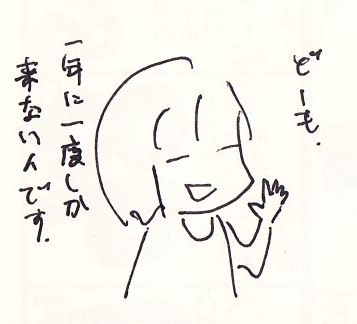 どーも.
一年に一度しか
来ない人です.